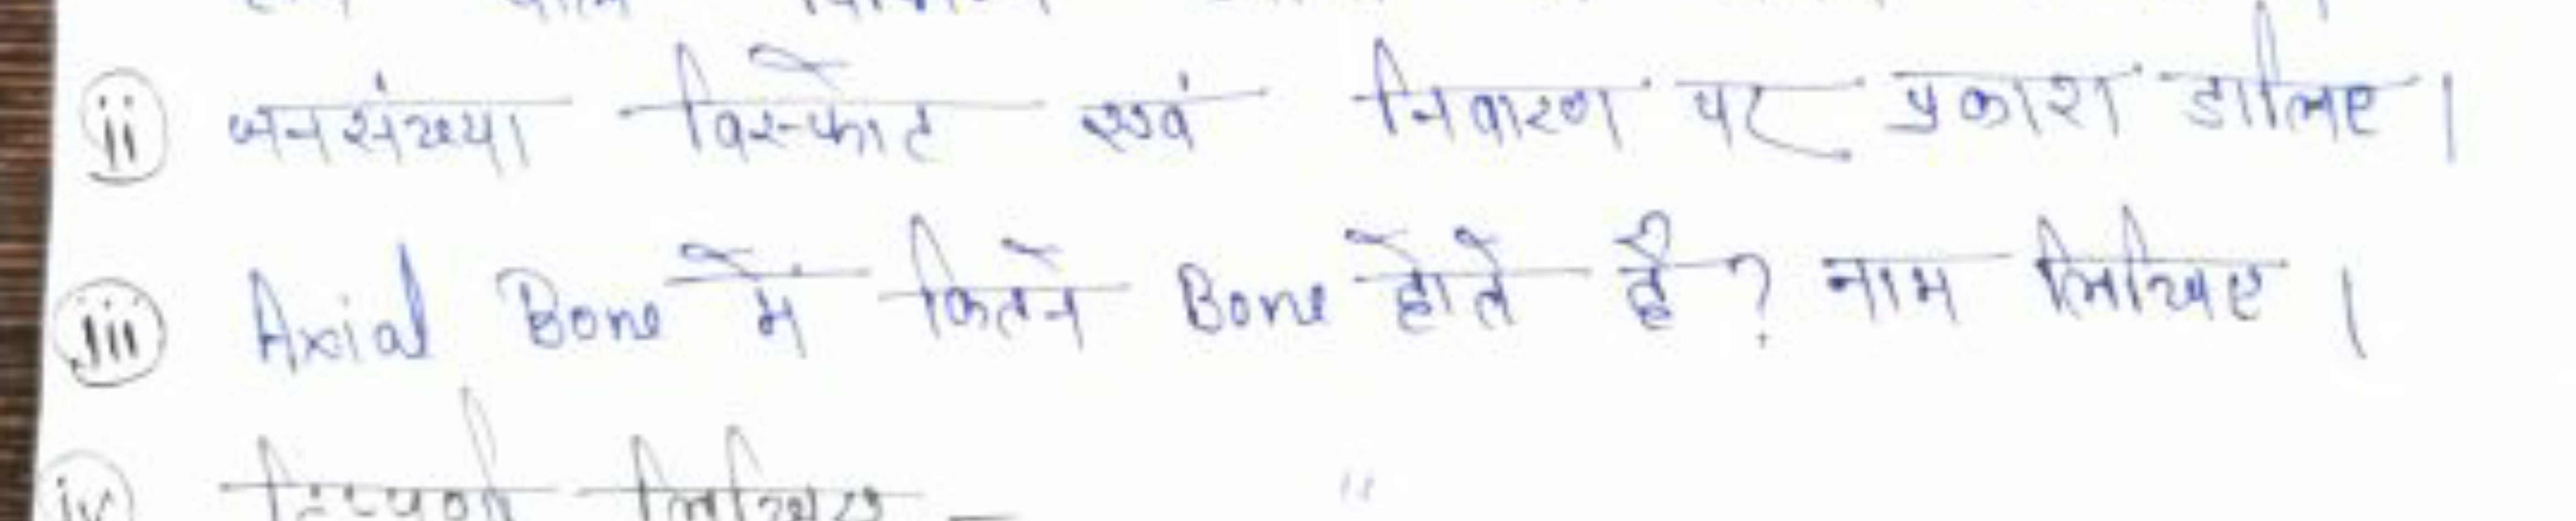 ii जनसंख्या विस्फोट एवं निवारण पर प्रकाश डालिए।
iii Axial Bone में कितने Bone होते है? नाम लिखिए।
iv टिप्पणी लिखिए –